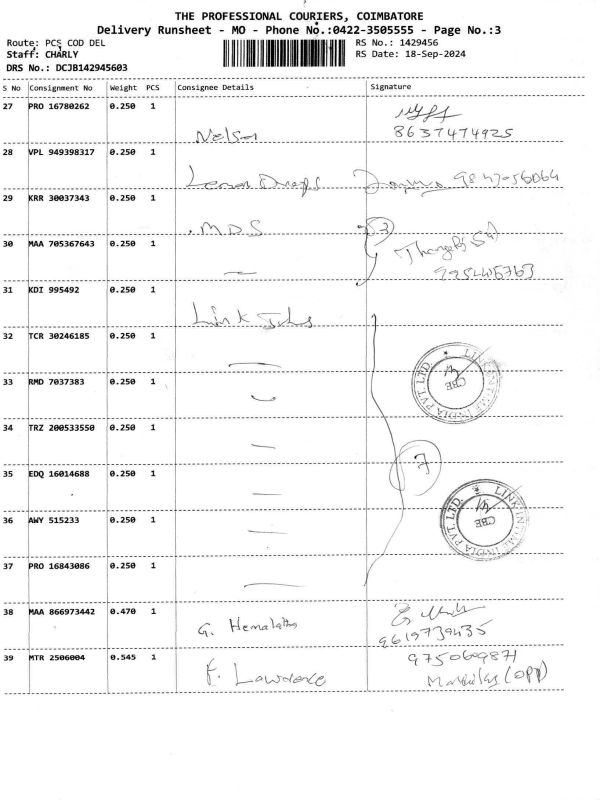 THE PROFESSIONAL COURIERS, COIMBATORE
Delivery Runsheet - MO - Phone No.:0422-3505555 - Page No.:3
Route: PCS COD DEL RS No.: 1429456
Staff: CHARLY RS Date: 18-Sep-2024
DRS No.: DCJB142945603
S No Consignment No Weight PCS Consignee Details Signature
27 PRO 16780262 0.250 1
Nelson 8637474925
28 VPL 949398317 0.250 1
Lemon Drops
29 KRR 30037343 0.250 1
M D S
30 MAA 705367643 0.250 1
31 KDI 995492 0.250 1
Link
32 TCR 30246185 0.250 1
LINK INTIME INDIA PVT. LTD. CBE
33 RMD 7037383 0.250 1
34 TRZ 200533550 0.250 1
7
35 EDQ 16014688 0.250 1
LINK INTIME INDIA PVT. LTD. CBE
36 AWY 515233 0.250 1
37 PRO 16843086 0.250 1
38 MAA 866973442 0.470 1
G. Hemalatha 9619739435
39 MTR 2506004 0.545 1
F. Lawrence (OPP)